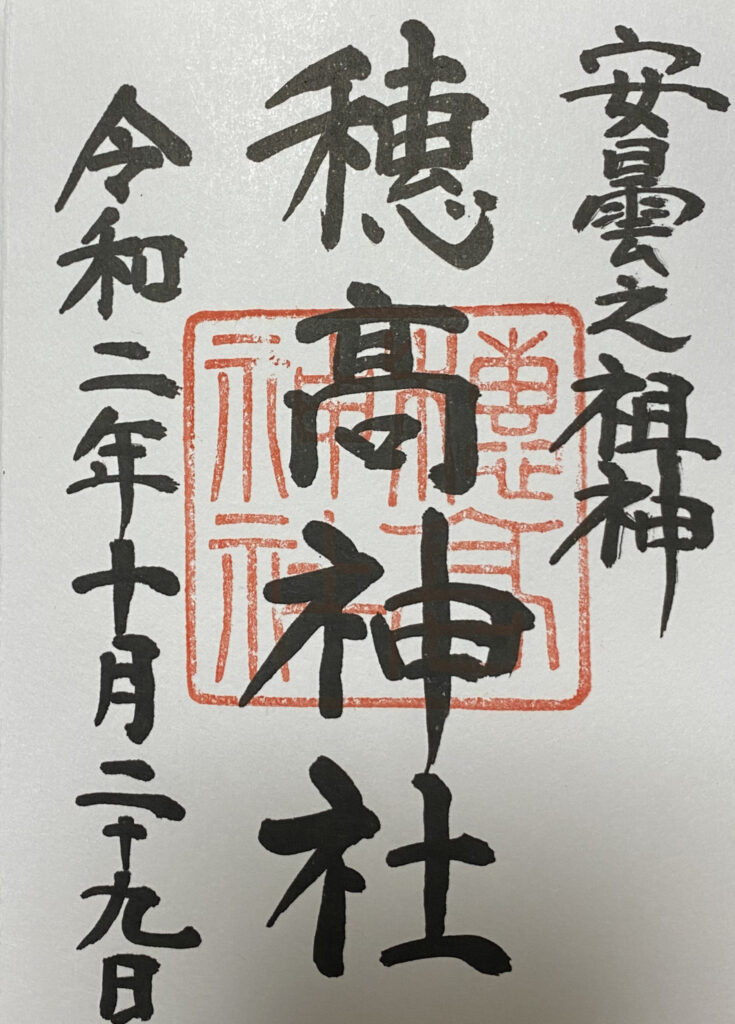 安曇之祖神
穂高神社
穂高
神社
令和二年十月二十九日